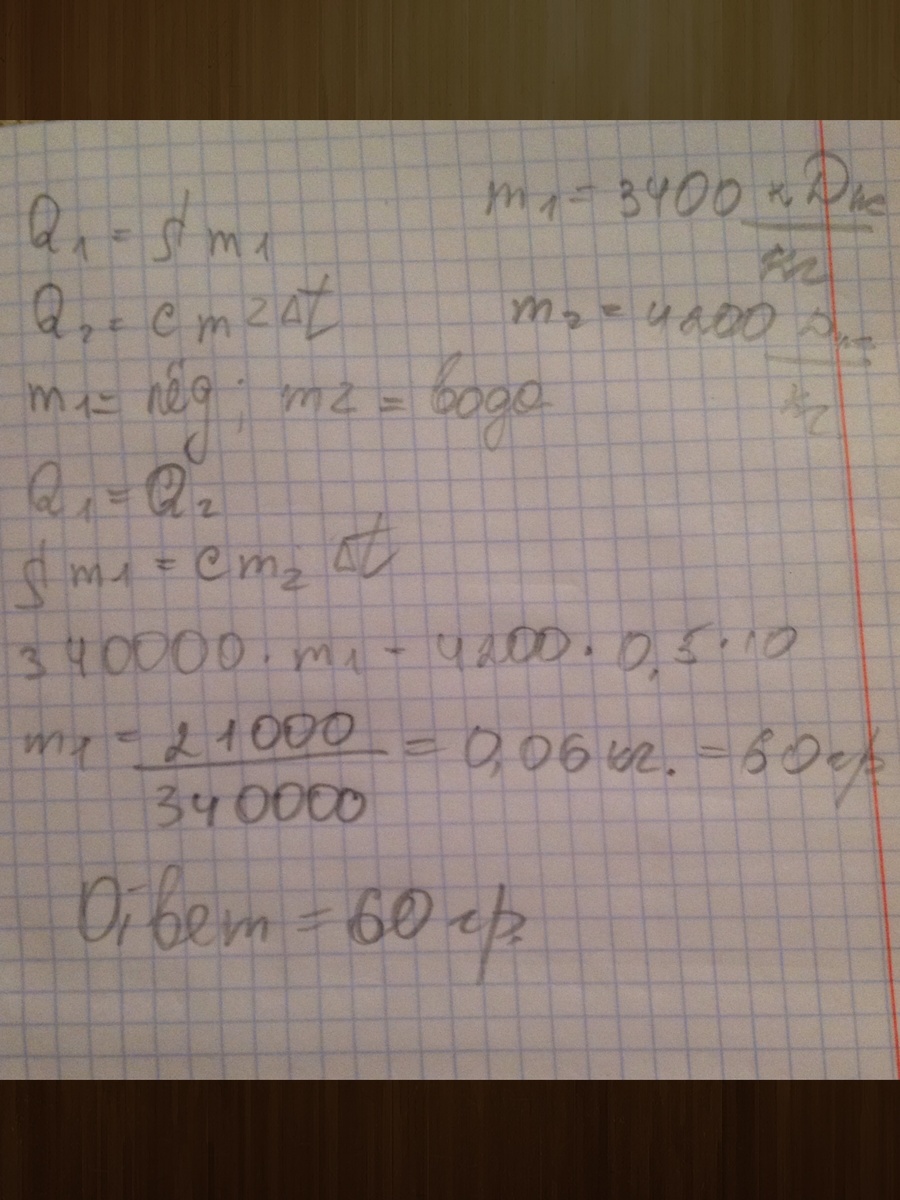 Q₁ = λ m₁
m₁ = 3400 кДж/кг
Q₂ = c m 2 Δt
m₂ = 4200 Дж/кг
m₁ = лёд ; m2 = вода
Q₁ = Q₂
λ m₁ = c m₂ Δt
340000 · m₁ - 4200 · 0,5 · 10
m₁ = 21000/340000 = 0,06 кг. = 60 гр
Ответ = 60 гр.